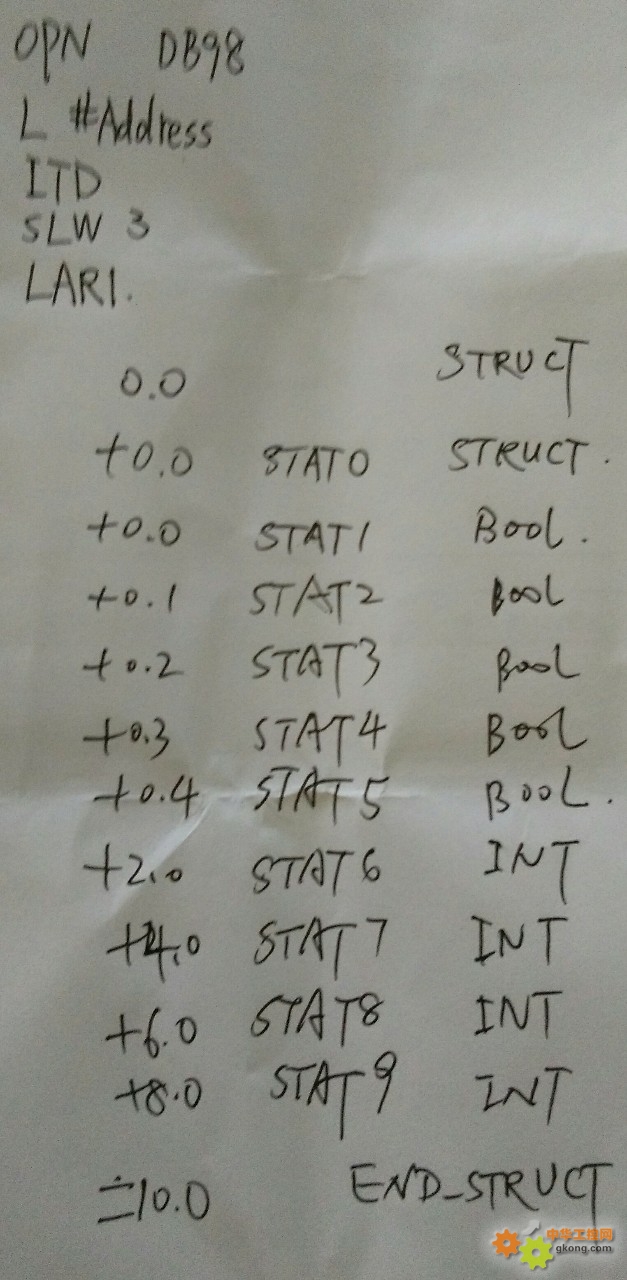 OPN DB98
L #Address
ITD
SLW 3
LAR1.
0.0 STRUCT
+0.0 STAT0 STRUCT.
+0.0 STAT1 Bool.
+0.1 STAT2 Bool
+0.2 STAT3 Bool
+0.3 STAT4 Bool
+0.4 STAT5 Bool.
+2.0 STAT6 INT
+4.0 STAT7 INT
+6.0 STAT8 INT
+8.0 STAT9 INT
=10.0 END_STRUCT
中华工控网
gkong.com